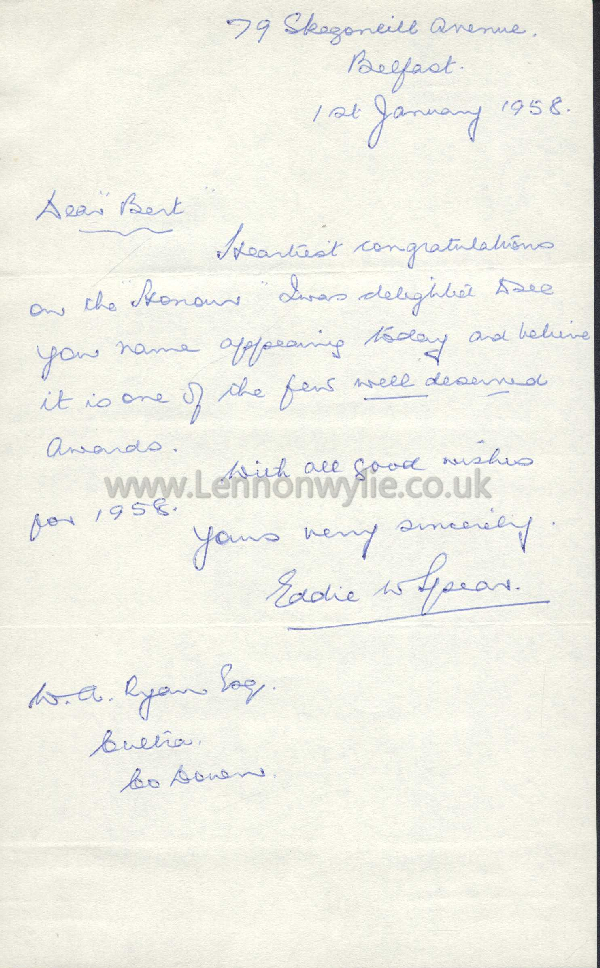 79 Skegoneill Avenue.
Belfast.
1st January 1958.
Dear "Bert"
Heartiest congratulations
on the "Honour" I was delighted to see
your name appearing today and believe
it is one of the few well deserved
Awards.
With all good wishes
www.Lennonwylie.co.uk
for 1958.
Yours very sincerely.
Eddie W Spear.
W. A. Ryan Esq.
Cultra.
Co Down.